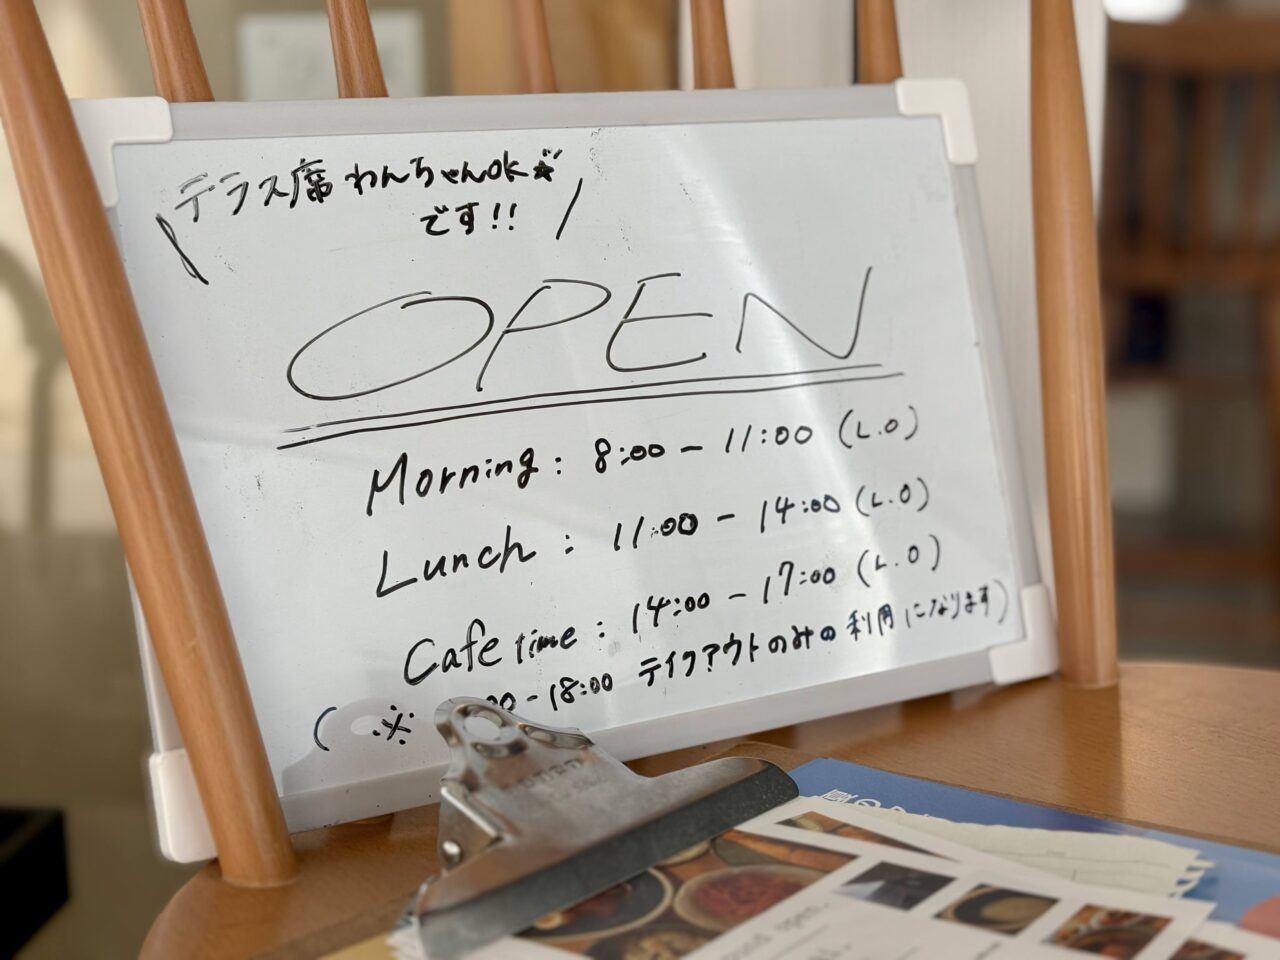 テラス席 わんちゃんOK☆
です!!
OPEN
Morning : 8:00 - 11:00 (L.O)
Lunch : 11:00 - 14:00 (L.O)
Cafe time : 14:00 - 17:00 (L.O)
( ※ 00 - 18:00 テイクアウトのみの利用になります)